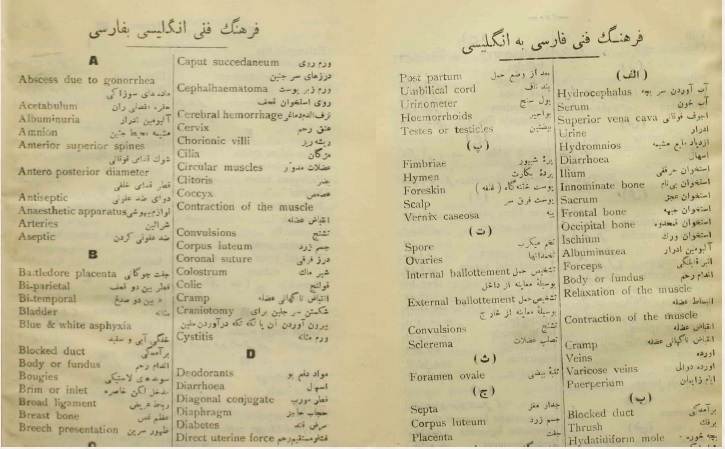 فرهنگ فنی انگلیسی بفارسی
A
Abscess due to gonorrhea
ماده های سوزاکی
Acetabulum حفره مفصلی ران
Albuminuria آلبومین ادرار
Amnion مشیمه محیط جنین
Anterior superior spines
شوک قدامی فوقانی
Antero posterior diameter
قطر قدامی خلفی
Antiseptic دوای ضد عفونی
Anaesthetic apparatus لوازم بیهوشی
Arteries شرائین
Aseptic ضد عفونی کردن
B
Battledore placenta جفت چوگانی
Bi-parietal قطر بین دو قحف
Bi-temporal بین دو صدغ
Bladder مثانه
Blue & white asphyxia
خفگی آبی و سفید
Blocked duct برآمدگی
Body or fundus اندام رحم
Bougies سوندهای لاستیکی
Brim or inlet مدخل لگن خاصره
Broad ligament ربط عریض
Breast bone عظم قص
Breech presentation ظهور سرین
C
Caput succedaneum ورم روی
درزهای سر جنین
Cephalhaematoma ورم زیر پوست
روی استخوان قحف
Cerebral hemorrhage نزف الدم دماغی
Cervix عنق رحم
Chorionic villi ریشه ریز
Cilia مژگان
Circular muscles عضلات مدور
Clitoris
Coccyx عصعص
Contraction of the muscle
انقباض عضله
Convulsions تشنج
Corpus luteum جسم زرد
Coronal suture درز فرقی
Colostrum شیر ماک
Colic قولنج
Cramp انقباض ناگهانی عضله
Craniotomy شکستن سر جنین برای
بیرون آوردن آن یا تکه تکه درآوردن جنین
Cystitis ورم مثانه
D
Deodorants مواد دفع بو
Diarrhoea اسهال
Diagonal conjugate قطر مورب
Diaphragm حجاب حاجز
Diabetes مرض قند
Direct uterine force فشار مستقیم رحم
فرهنگ فنی فارسی به انگلیسی
(الف)
Hydrocephalus آب آوردن سر بچه
Serum آب خون
Superior vena cava اجوف فوقانی
Urine ادرار
Hydromnios ازدیاد مایع مشیمه
Diarrhoea اسهال
Ilium استخوان حرقفی
Innominate bone استخوان بی‌نام
Sacrum استخوان عجز
Frontal bone استخوان جبهه
Occipital bone استخوان قمحدوه
Ischium استخوان ورک
Albuminurea آلبومین ادرار
Forceps
Body or fundus اندام رحم
Relaxation of the muscle
انبساط عضله
Contraction of the muscle
انقباض عضله
Cramp انقباض ناگهانی عضله
Veins اورده
Varicose veins اورده دوالی
Puerperium ایام زایمان
(ب)
Blocked duct برآمدگی
Thrush برفک
Hydatidiform mole بچه خوره
Post partum بعد از وضع حمل
Umbilical cord بند ناف
Urinometer بول سنج
Haemorrhoids بواسیر
Testes or testicles بیضتین
(پ)
Fimbriae پرهٔ شیپور
Hymen پردهٔ بکارت
Foreskin پوست ختنه‌گاه (غلفه)
Scalp پوست فرق سر
Vernix caseosa پیه
(ت)
Spore تخم میکرب
Ovaries تخمدانها
Internal ballottement تشخیص حمل
بوسیلهٔ معاینه از داخل
External ballottement تشخیص حمل
بوسیلهٔ معاینه از خارج
Convulsions تشنج
Sclerema تصلب عضلات
(ث)
Foramen ovale ثقبهٔ بیضی
(ج)
Septa جدار مغز
Corpus luteum جسم زرد
Placenta جفت